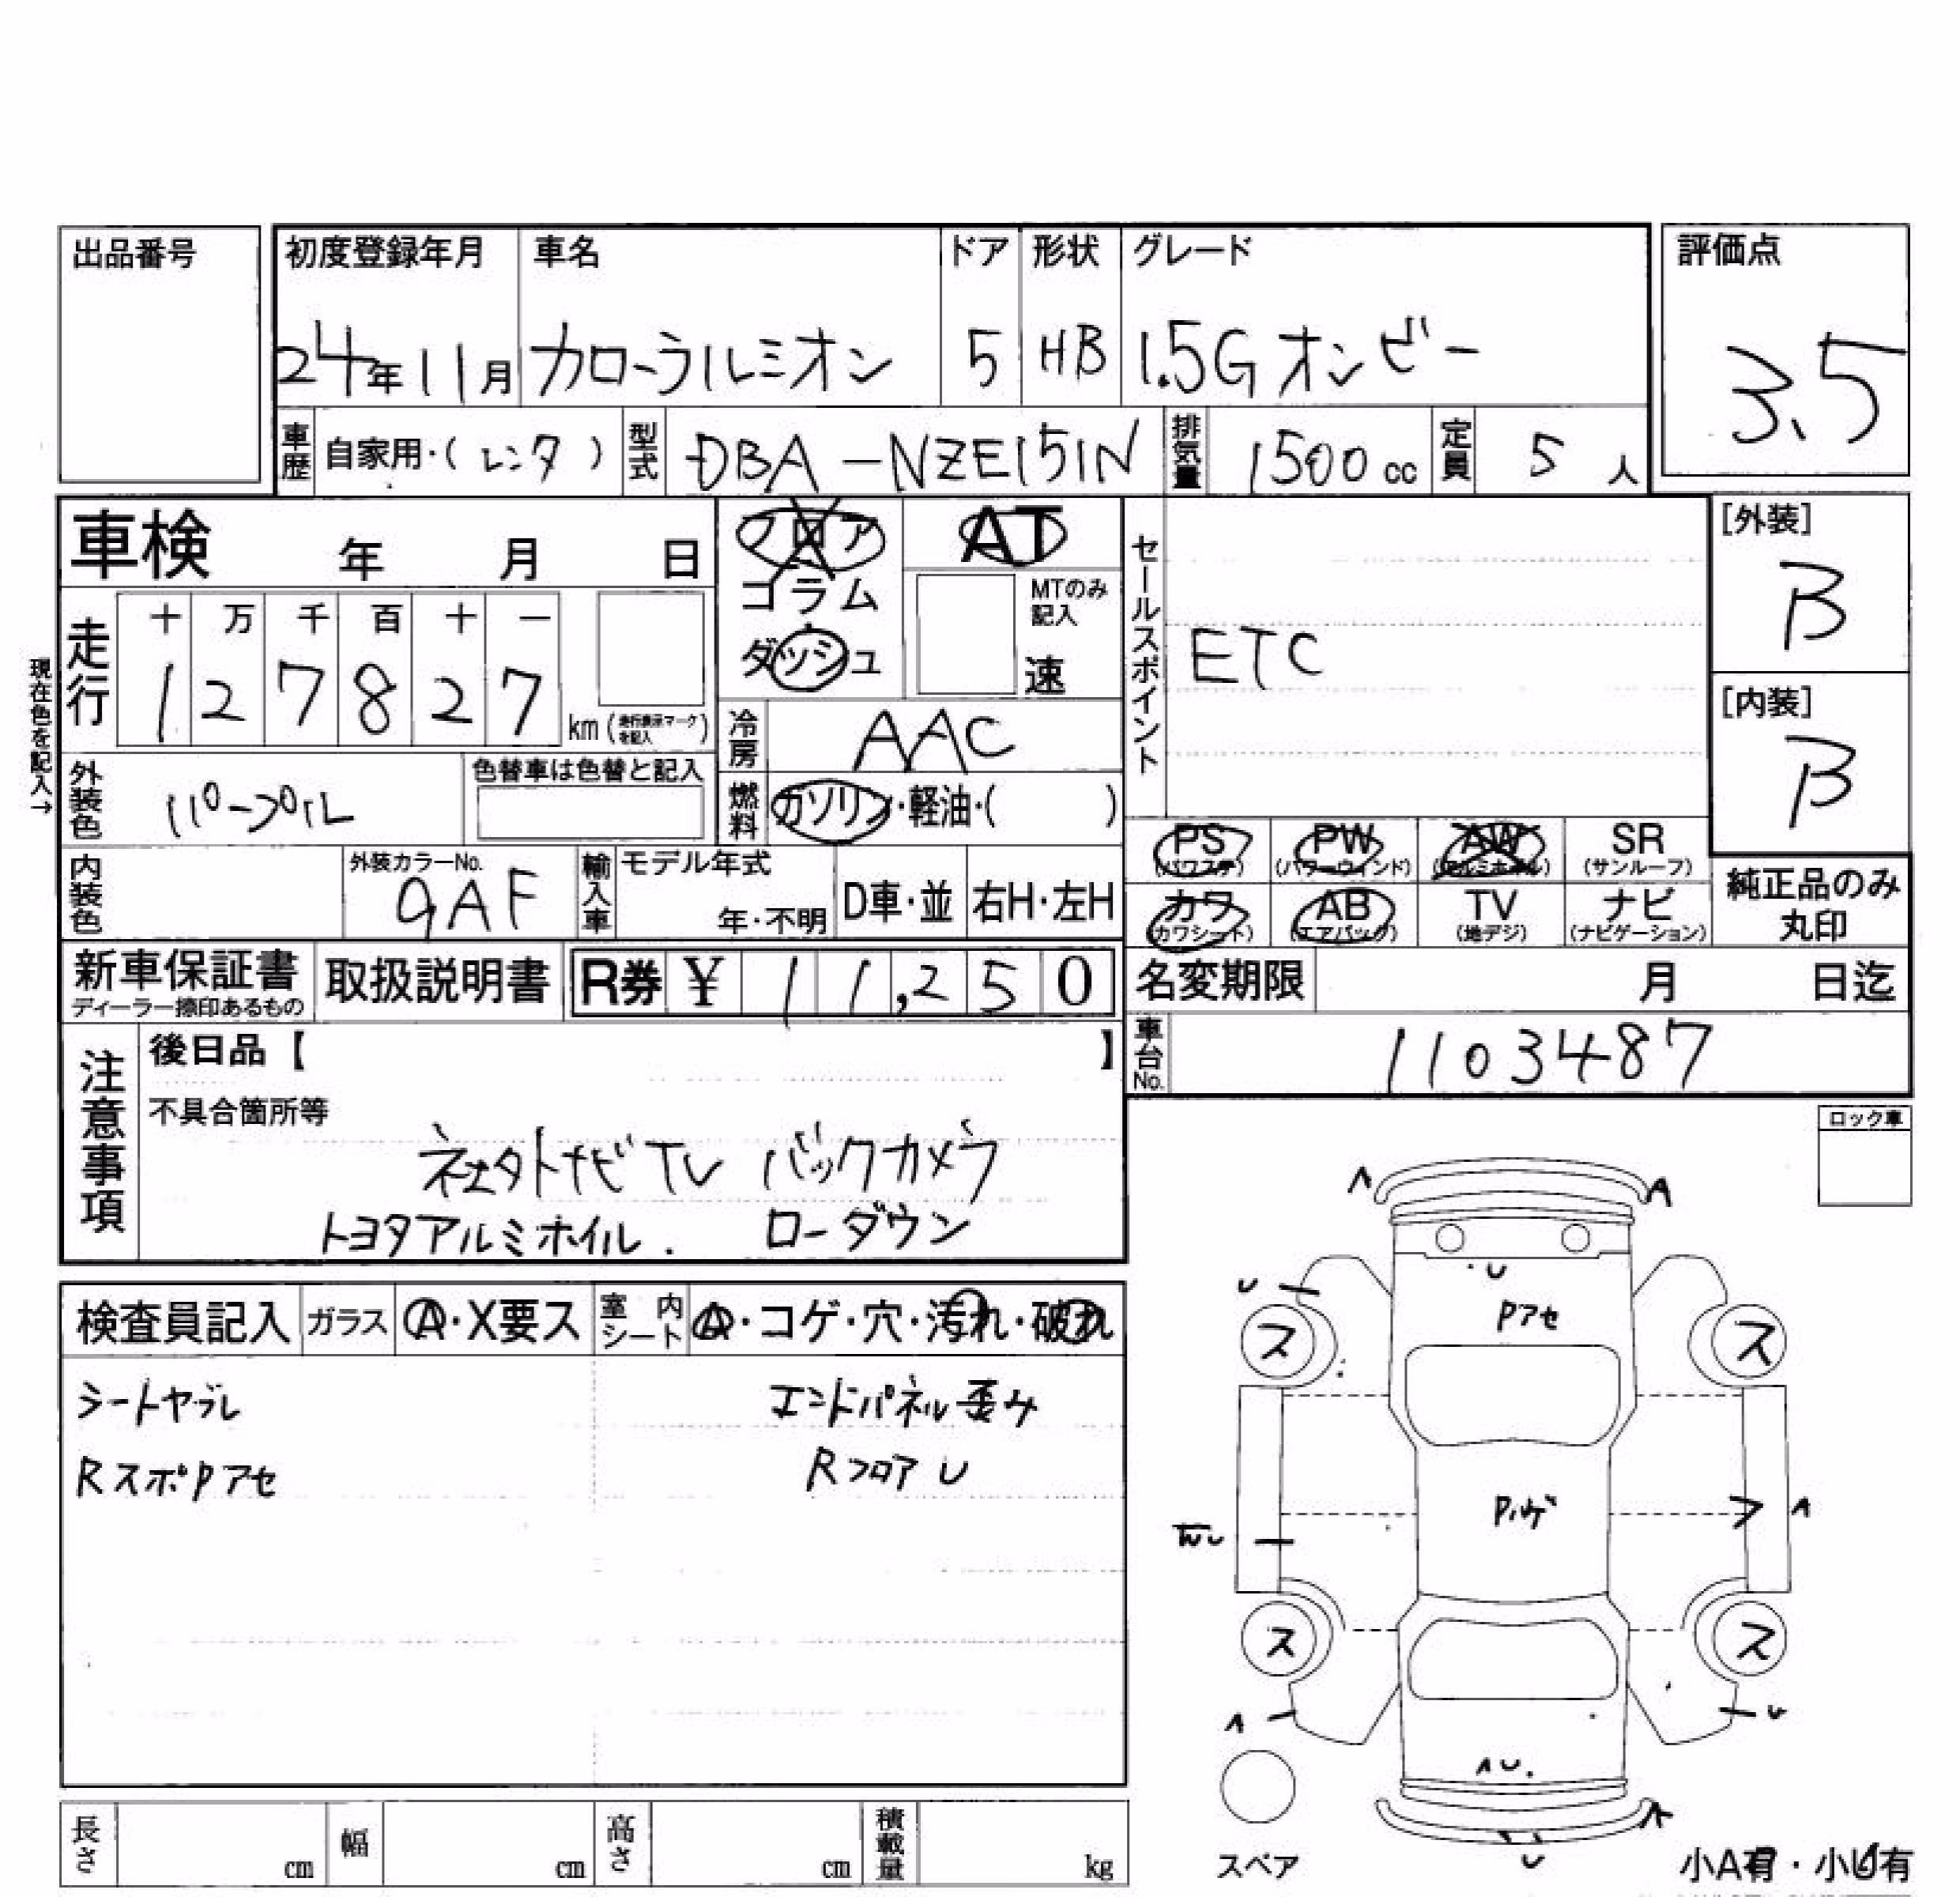 出品番号
初度登録年月 車名 ドア 形状 グレード 評価点
24年11月 カローラルミオン 5 HB 1.5G オンビー 3.5
車歴 自家用・(レンタ) 型式 DBA-NZE151N 排気量 1500cc 定員 5人
車検 年 月 日
フロア
コラム
ダッシュ
AT
MTのみ記入
速
セールスポイント
ETC
[外装]
B
[内装]
B
現在色を記入→
走行
十 万 千 百 十 一
1 2 7 8 2 7 km (走行表示マークを記入)
冷房 AAC
外装色 パープル 色替車は色替と記入
燃料 ガソリン・軽油・( )
PS (パワステ) PW (パワーウィンド) AW (アルミホイル) SR (サンルーフ)
カワ (カワシート) AB (エアバッグ) TV (地デジ) ナビ (ナビゲーション)
純正品のみ
丸印
内装色 外装カラーNo. 9AF 輸入車 モデル年式 年・不明 D車・並 右H・左H
新車保証書 ディーラー捺印あるもの 取扱説明書 R券 ¥ 11,250
名変期限 月 日迄
車台No. 1103487
注意事項
後日品【 】
不具合箇所等
社外ナビTV バックカメラ
トヨタアルミホイル. ローダウン
ロック車
検査員記入 ガラス A・X要ス 室内シート A・コゲ・穴・汚れ・破れ
シートヤブレ エンドパネル歪み
RスポPアセ Rフロア U
U
Pアセ
U
ス ス
ス ス
A
U
U
スペア
小A有・小U有
長さ cm 幅 cm 高さ cm 積載量 kg